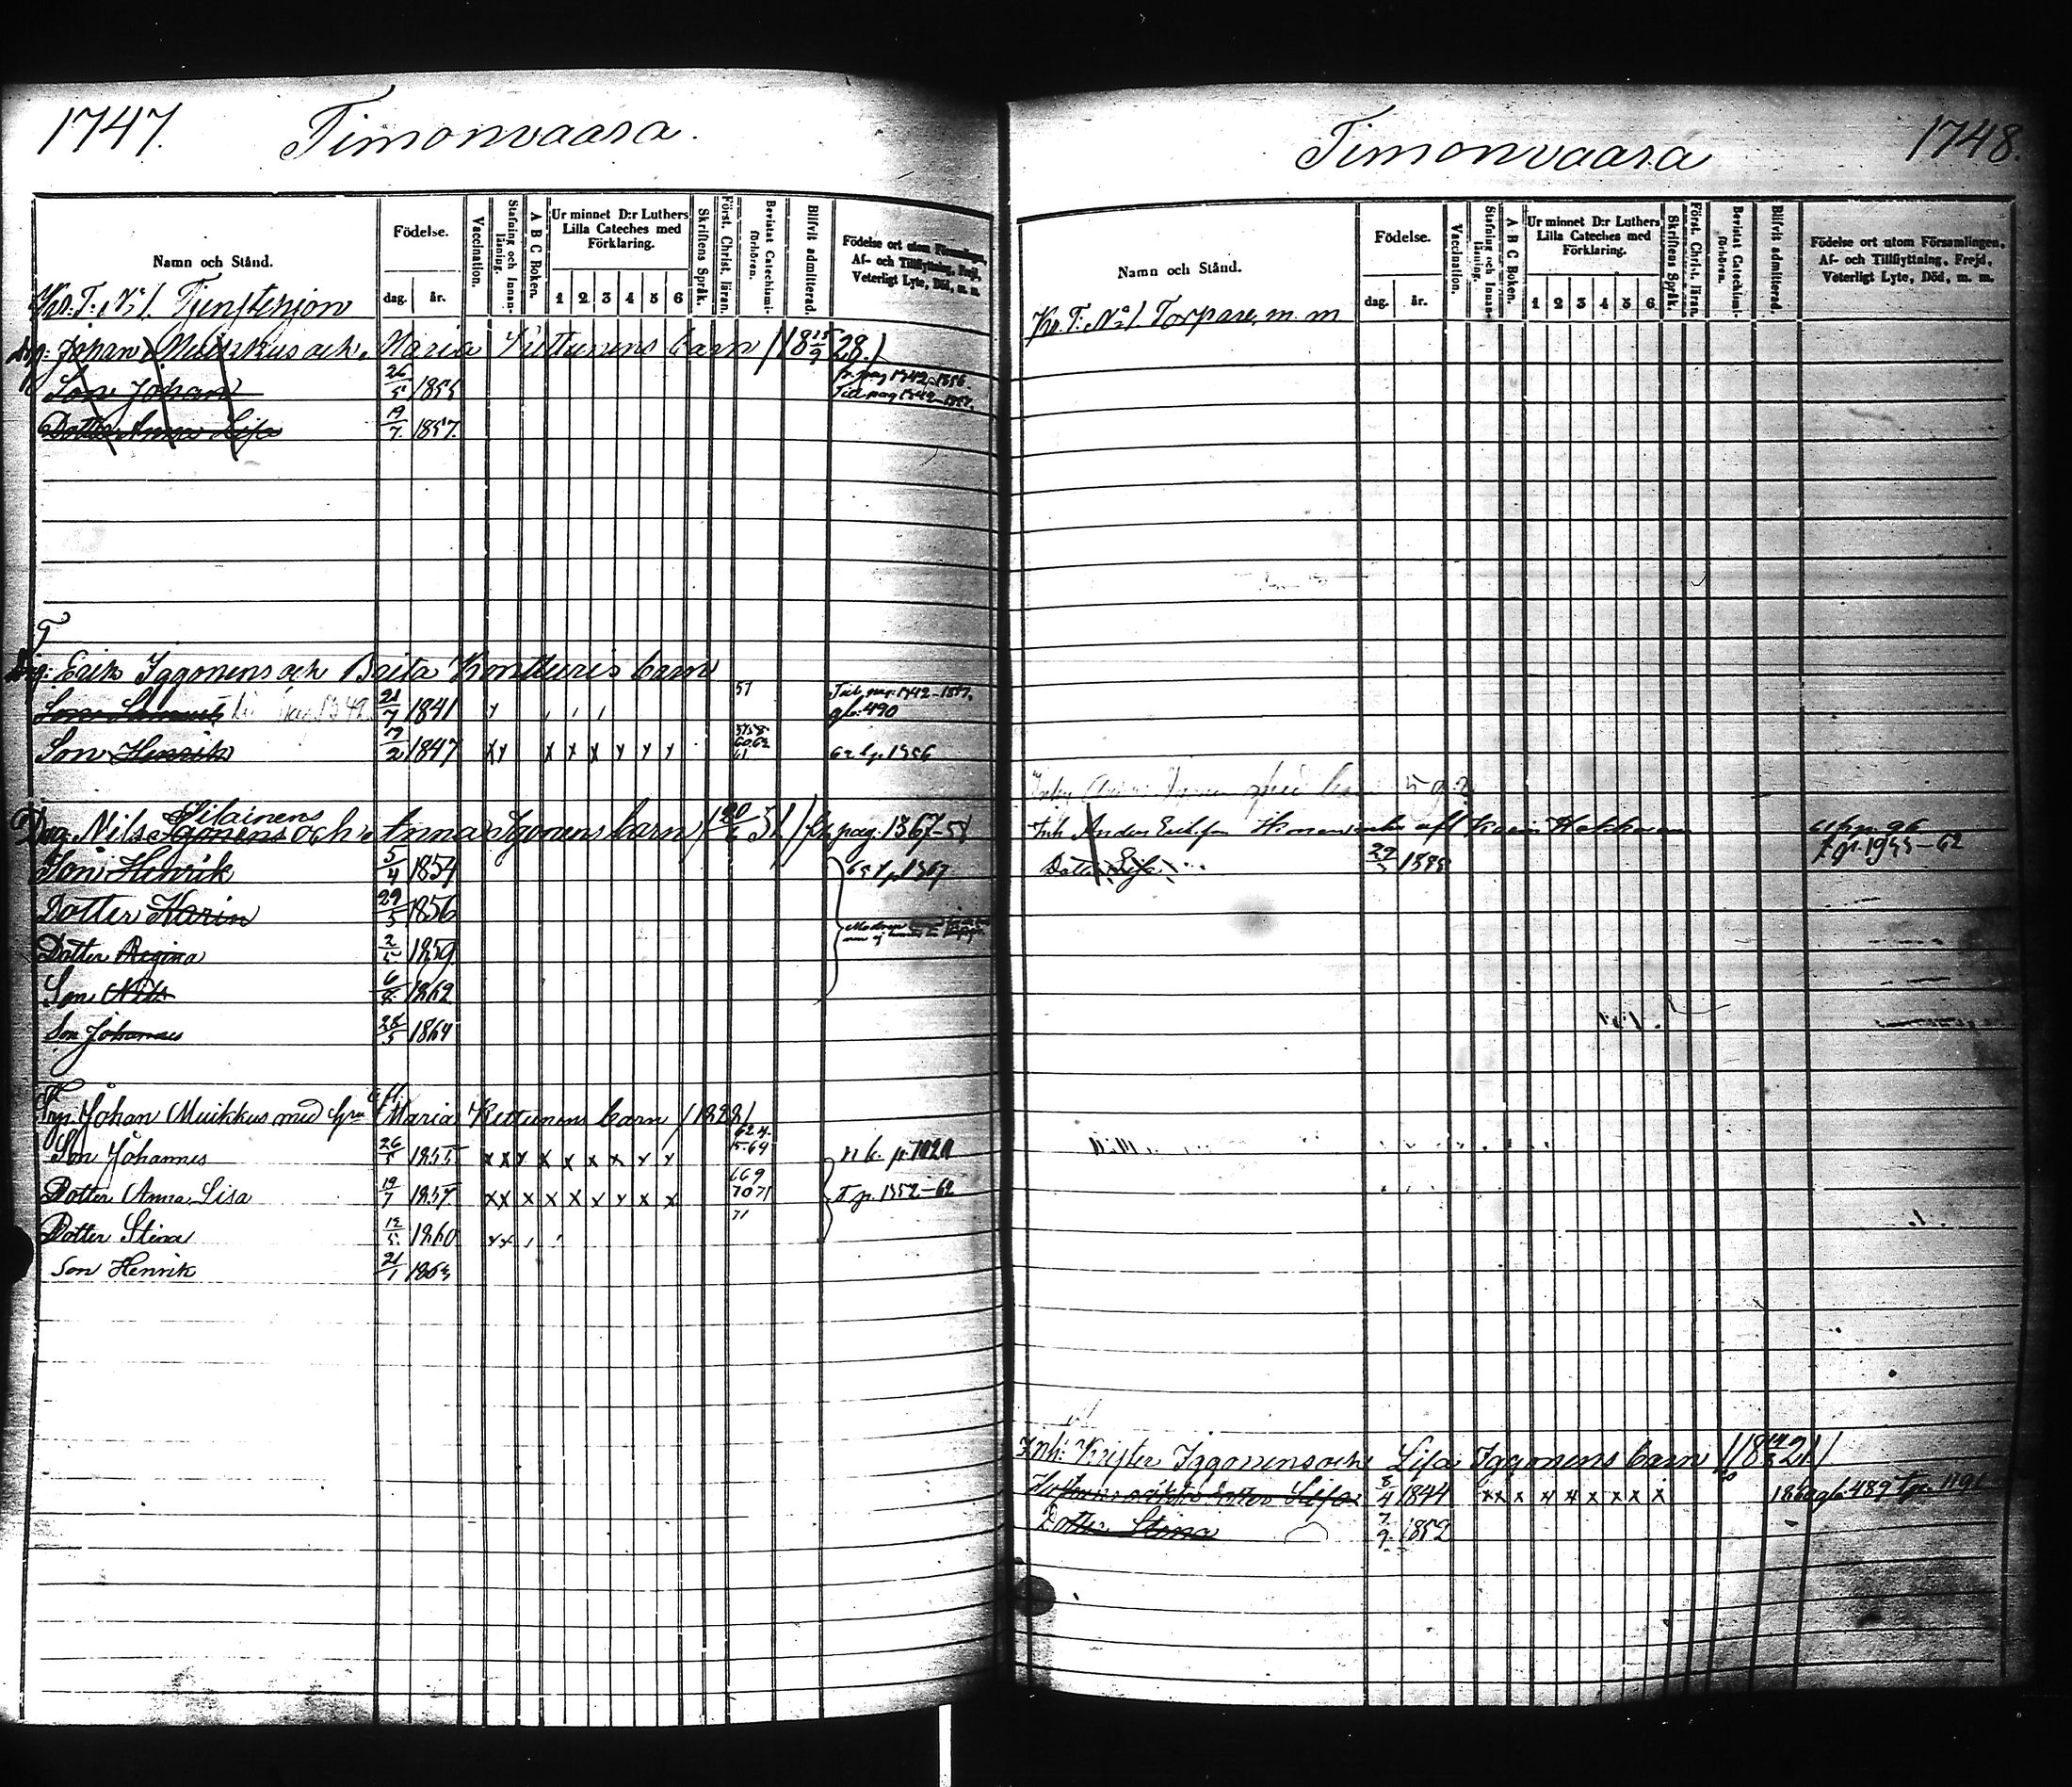 1747.
Timonvaara.
Namn och Stånd.
Födelse.
dag.
år.
Vaccination.
Stafning och Innan-läsning.
A B C Boken.
Ur minnet D:r Luthers
Lilla Cateches med
Förklaring.
1 2 3 4 5 6
Skriftens Språk.
Först. Christ. läran.
Bevistat Catechismi-förhören.
Blifvit admitterad.
Födelse ort utom Församlingen,
Af- och Tillflyttning, Frejd,
Veterligt Lyte, Död, m. m.
Kr. T: No 1. Tjenstehjon
Johan Muikkus och Maria Kettunens barn / 18 15/9 28 /
Son Johan 26/5 1855 fr. pag 1742-1856.
Till pag 1742-1857.
Dotter Anna Lisa 19/7 1857.
Erik Iggonens och Brita Kontturis barn
Son Samuel 21/7 1841 57 Till pag. 1742-1857.
490
Son Henrik 19/2 1847 x x x x x x x x
Silainens
Nils Igonens och Anna Igonens barn pag. 1367-58
Son Henrik 5/4 1854
Dotter Karin 29/5 1856
Dotter Regina 2/5 1859
Son Nils 6/8 1862
Son Johannes 28/5 1864
Johan Muikkus med Maria Kettunens barn / 1828 /
Son Johannes 26/5 1855 x x x x x x x x x
Dotter Anna Lisa 19/7 1857. x x x x x x x x x 1352-62
Dotter Stina 12/5 1860
Son Henrik 21/1 1863
Timonvaara
1748.
Namn och Stånd.
Födelse.
dag.
år.
Vaccination.
Stafning och Innan-läsning.
A B C Boken.
Ur minnet D:r Luthers
Lilla Cateches med
Förklaring.
1 2 3 4 5 6
Skriftens Språk.
Först. Christ. läran.
Bevistat Catechismi-förhören.
Blifvit admitterad.
Födelse ort utom Församlingen,
Af- och Tillflyttning, Frejd,
Veterligt Lyte, Död, m. m.
Kr. T: No 1. Torpare, m. m
Inh Anders
Dotter Lisa
Inh: Krister Iggonens och Lisa Iggonens barn
Lisa 8/4 1844 x x x x x x x x x
Dotter Stina 7/9 1852